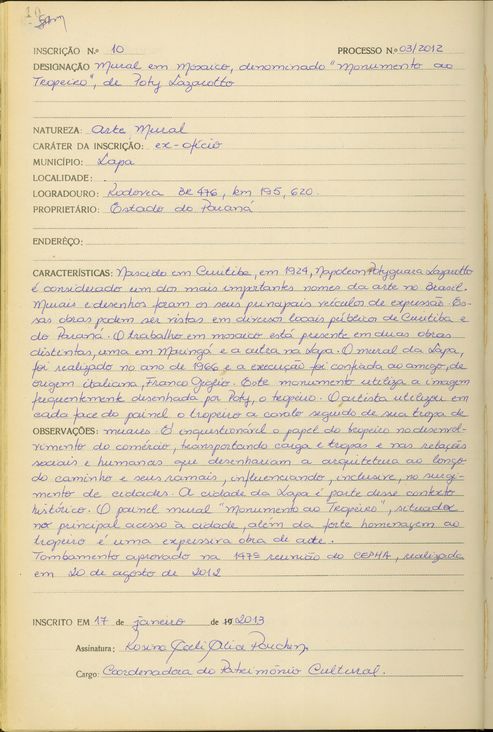 10
INSCRIÇÃO N.º 10 PROCESSO N.º 03/2012
DESIGNAÇÃO Mural em Mosaico, denominado "Monumento ao
Tropeiro", de Poty Lazarotto
NATUREZA: Arte Mural
CARÁTER DA INSCRIÇÃO: ex-ofício
MUNICÍPIO: Lapa
LOCALIDADE: .
LOGRADOURO: Rodovia BR 476, km 195,620.
PROPRIETÁRIO: Estado do Paraná
ENDERÊÇO:
CARACTERÍSTICAS: Nascido em Curitiba, em 1924, Napoleon Potyguara Lazarotto
é considerado um dos mais importantes nomes da arte no Brasil.
Murais e desenhos foram os seus principais veículos de expressão. Es-
sas obras podem ser vistas em diversos locais públicos de Curitiba e
do Paraná. O trabalho em mosaico está presente em duas obras
distintas, uma em Maringá e a outra na Lapa. O mural da Lapa,
foi realizado no ano de 1966 e a execução foi confiada ao amigo, de
origem italiana, Franco Giglio. Este monumento utiliza a imagem
frequentemente desenhada por Poty, o tropeiro. O artista utilizou em
cada face do painel o tropeiro a cavalo seguido de sua tropa de
OBSERVAÇÕES: muares. É inquestionável o papel do tropeiro no desenvol-
vimento do comércio, transportando carga e tropas e nas relações
sociais e humanas que desenhavam a arquitetura ao longo
do caminho e seus ramais, influenciando, inclusive, no surgi-
mento de cidades. A cidade da Lapa é parte desse contexto
histórico. O painel mural "Monumento ao Tropeiro", situado
no principal acesso à cidade, além da forte homenagem ao
tropeiro é uma expressiva obra de arte.
Tombamento aprovado na 147ª reunião do CEPHA, realizada
em 20 de agosto de 2012
INSCRITO EM 17 de janeiro de 19 2013
Assinatura: Rosina
Cargo: Coordenadora do Patrimônio Cultural.